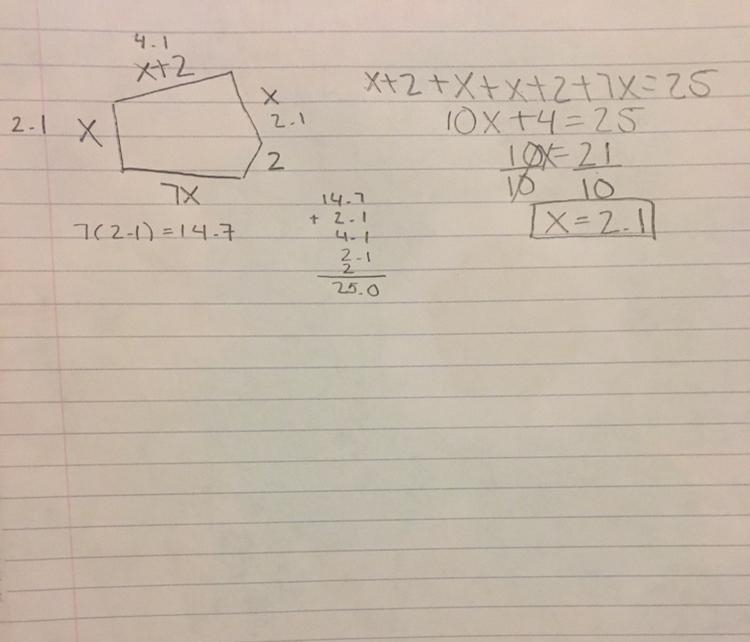 4.1
x+2
x
2.1
2.1
X
2
7X
7(2.1)=14.7
14.7
+ 2.1
4.1
2.1
2
25.0
x+2+x+x+2+7x=25
10x+4=25
10x=21
10 10
X=2.1